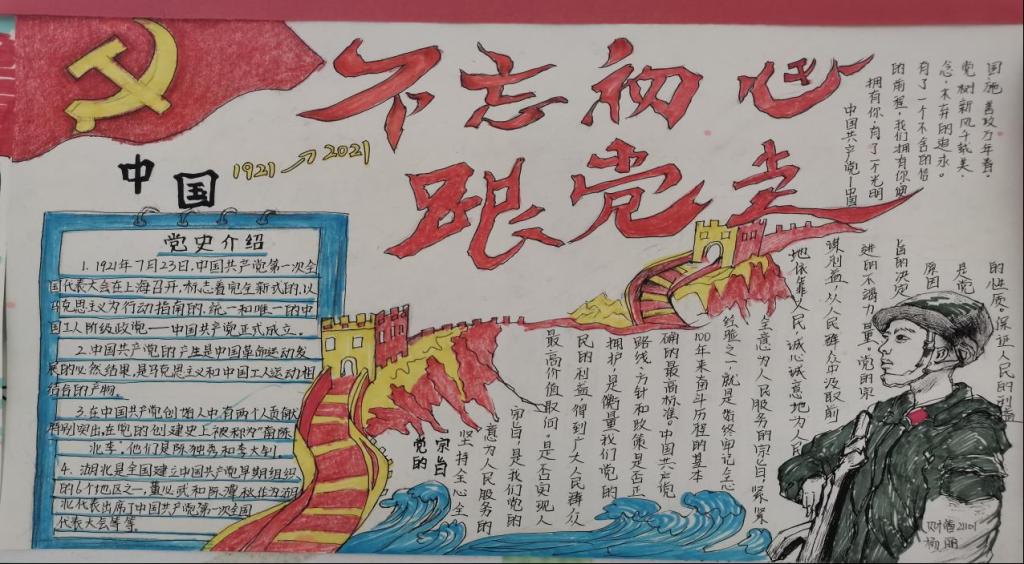 不忘初心
跟党走
中国
1921 → 2021
党史介绍
1.1921年7月23日,中国共产党第一次全
国代表大会在上海召开,标志着完全新式的,以
马克思主义为行动指南的,统一和唯一的中
国工人阶级政党——中国共产党正式成立。
2.中国共产党的产生是中国革命运动发
展的必然结果,是马克思主义和中国工人运动相
结合的产物。
3.在中国共产党创始人中,有两个人贡献
特别突出,在党的创建史上被称为“南陈
北李”。他们是陈独秀和李大钊。
4.湖北是全国建立中国共产党早期组织
的6个地区之一,董必武和陈潭秋作为湖
北代表出席了中国共产党第一次全国
代表大会等等。
国施善政万年春,
党树新风千载美,
念,不弃的追求。
有了一个不舍的信
的前程,我们拥有你
拥有你,有了一个光明
中国共产党—中国
党的
宗旨
坚持全心全
意为人民服务的
宗旨,是我们党的
最高价值取向。是否实现人
民的利益,得到广大人民群众
拥护,是衡量我们党的
路线、方针和政策是否正
确的最高标准。中国共产党
100年来奋斗历程的基本
经验之一,就是始终牢记全心
全意为人民服务的宗旨,紧紧
地依靠人民,诚心诚意地为人民
谋利益,从人民群众中汲取前
进的不竭力量。党的宗
旨的决定
原因
是党
的性质。保证人民的利益
财管2101
杨丽